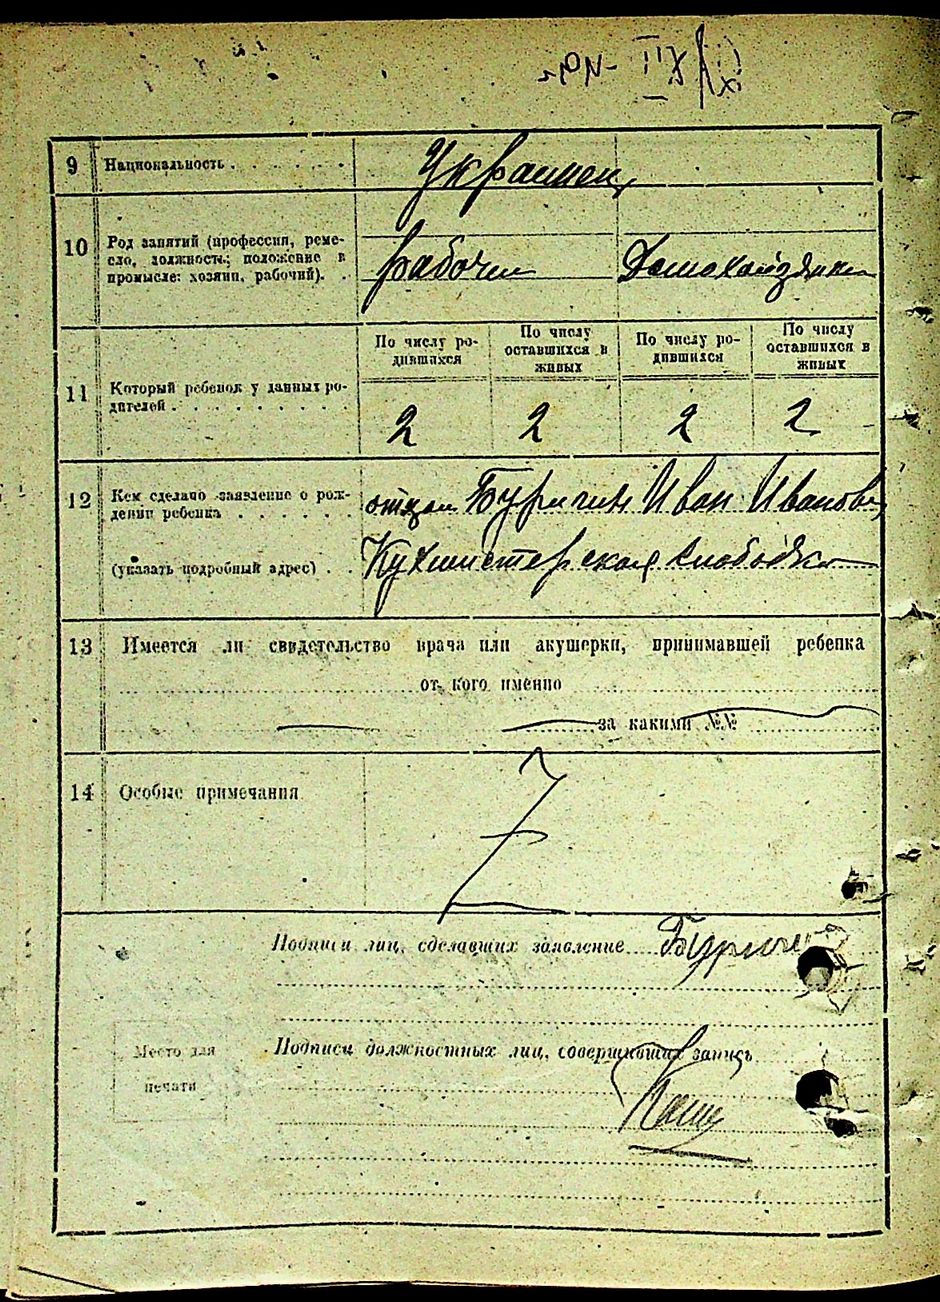 9 Национальность . . . . . . . Украинец
10 Род занятий (профессия, реме-
сло, должность; положение в
промысле: хозяин, рабочий). .
рабочий Домохозяйка
11 Который ребенок у данных ро-
дителей . . . . . . . . . .
По числу ро-
дившихся
По числу
оставшихся в
живых
По числу ро-
дившихся
По числу
оставшихся в
живых
2 2 2 2
12 Кем сделано заявление о рож-
дении ребенка . . . . . .
(указать подробный адрес) . .
отцом Иван Иванов
Кухмистерская слободка
13 Имеется ли свидетельство врача или акушерки, принимавшей ребенка
от кого именно
за какими №№
14 Особые примечания
Подписи лиц, сделавших заявление
Место для
печати
Подписи должностных лиц, совершивших запись